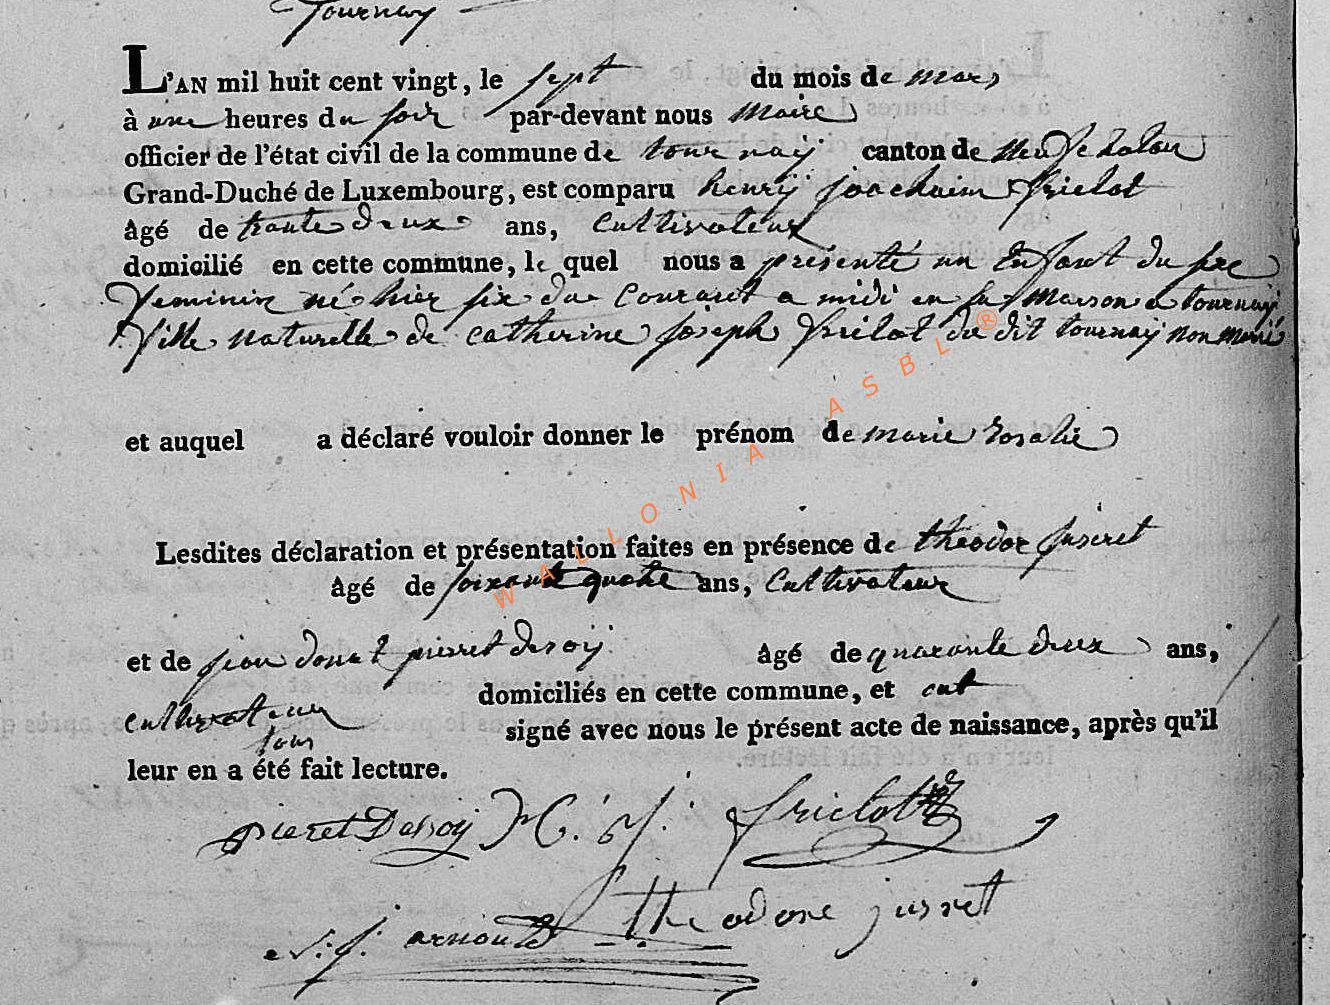 Tournay
L'AN mil huit cent vingt, le sept du mois de mars
à une heures du soir par-devant nous maire
officier de l'état civil de la commune de tournaij canton de Neufchatau
Grand-Duché de Luxembourg, est comparu henrij joachim friclot
âgé de trante deux ans, Cultivateur
domicilié en cette commune, le quel nous a présenté un Enfant du sexe
feminin né hier six du Courant a midi en sa maison a tournaij
fille naturelle de Catherine joseph friclot du dit tournaij non marié
et auquel a déclaré vouloir donner le prénom de marie rosalie
Lesdites déclaration et présentation faites en présence de theodor jusseret
âgé de soixante quatre ans, Cultivateur
et de jean donat pierret desoij âgé de quarante deux ans,
cultivateur domiciliés en cette commune, et ont
tous signé avec nous le présent acte de naissance, après qu'il
leur en a été fait lecture.
pieret Desoij H. j. friclot
theodore jusret
j. arnould
WALLONIA ASBL ®